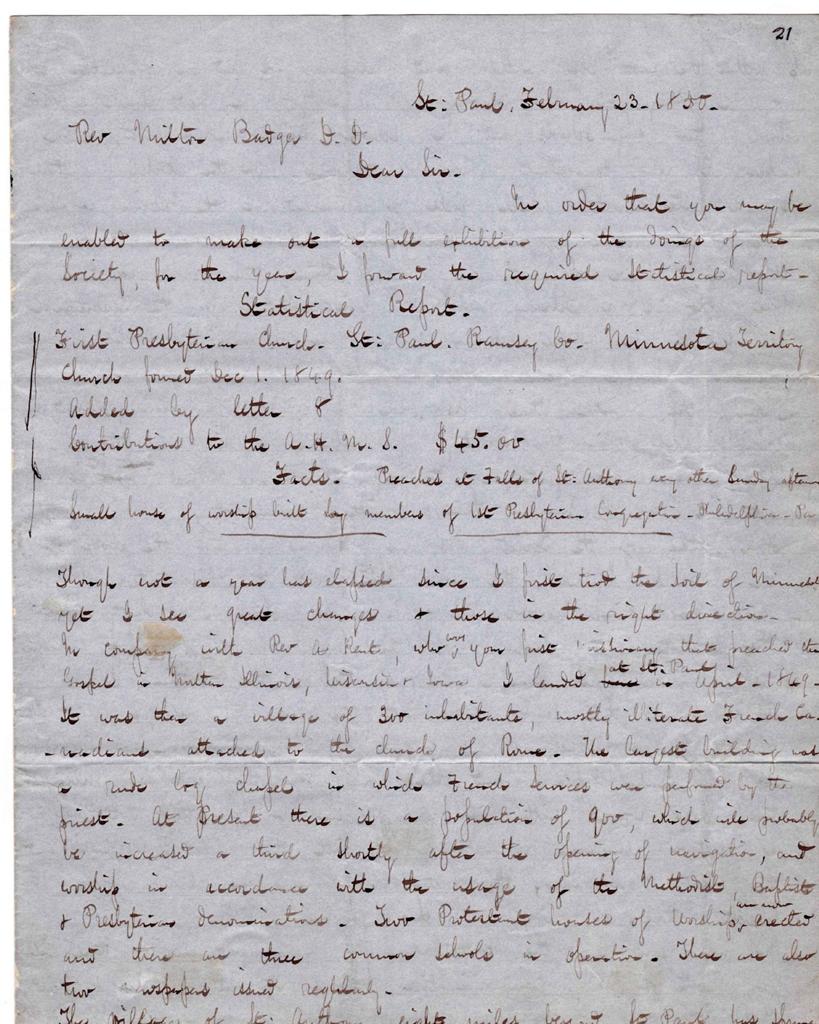 21
St: Paul, February 23-1850-
Rev Milton Badger D. D.
Dear Sir-
In order that you may be
enabled to make out a full exhibition of the doings of the
Society, for the year, I forward the required Statistical report-
Statistical Report.
First Presbyterian Church- St: Paul. Ramsey Co- Minnesota Territory
Church formed Dec 1. 1849.
Added by letter 8
Contributions to the A. H. M. S. $45.00
Facts- Preaches at Falls of St: Anthony every other Sunday aftern
Small house of worship built by members of 1st Presbyterian Congregation- Philidelphia- Pa
Though not a year has elapsed since I first trod the soil of Minnesot
yet I see great changes & those in the right direction-
In company with Rev A Kent, who was your first missionary that preached the
Gospel in Illinois, Wisconsin & Iowa I landed at St: Paul in April-1849-
It was then a village of 300 inhabitants, mostly illiterate French Ca-
-nadians attached to the church of Rome- The largest building was
a rude log chapel in which French services were performed by the
priest- At Present there is a population of 900, which will probably
be increased a third shortly after the opening of navigation, and
worship in accordance with the usage of the Methodist, Baptist
& Presbyterian denominations- Two Protestant houses of worship are now erected
and there are three common schools in operation- There are also
two newspapers issued regularly-
The village of St: Anthony eight miles beyond St Paul has